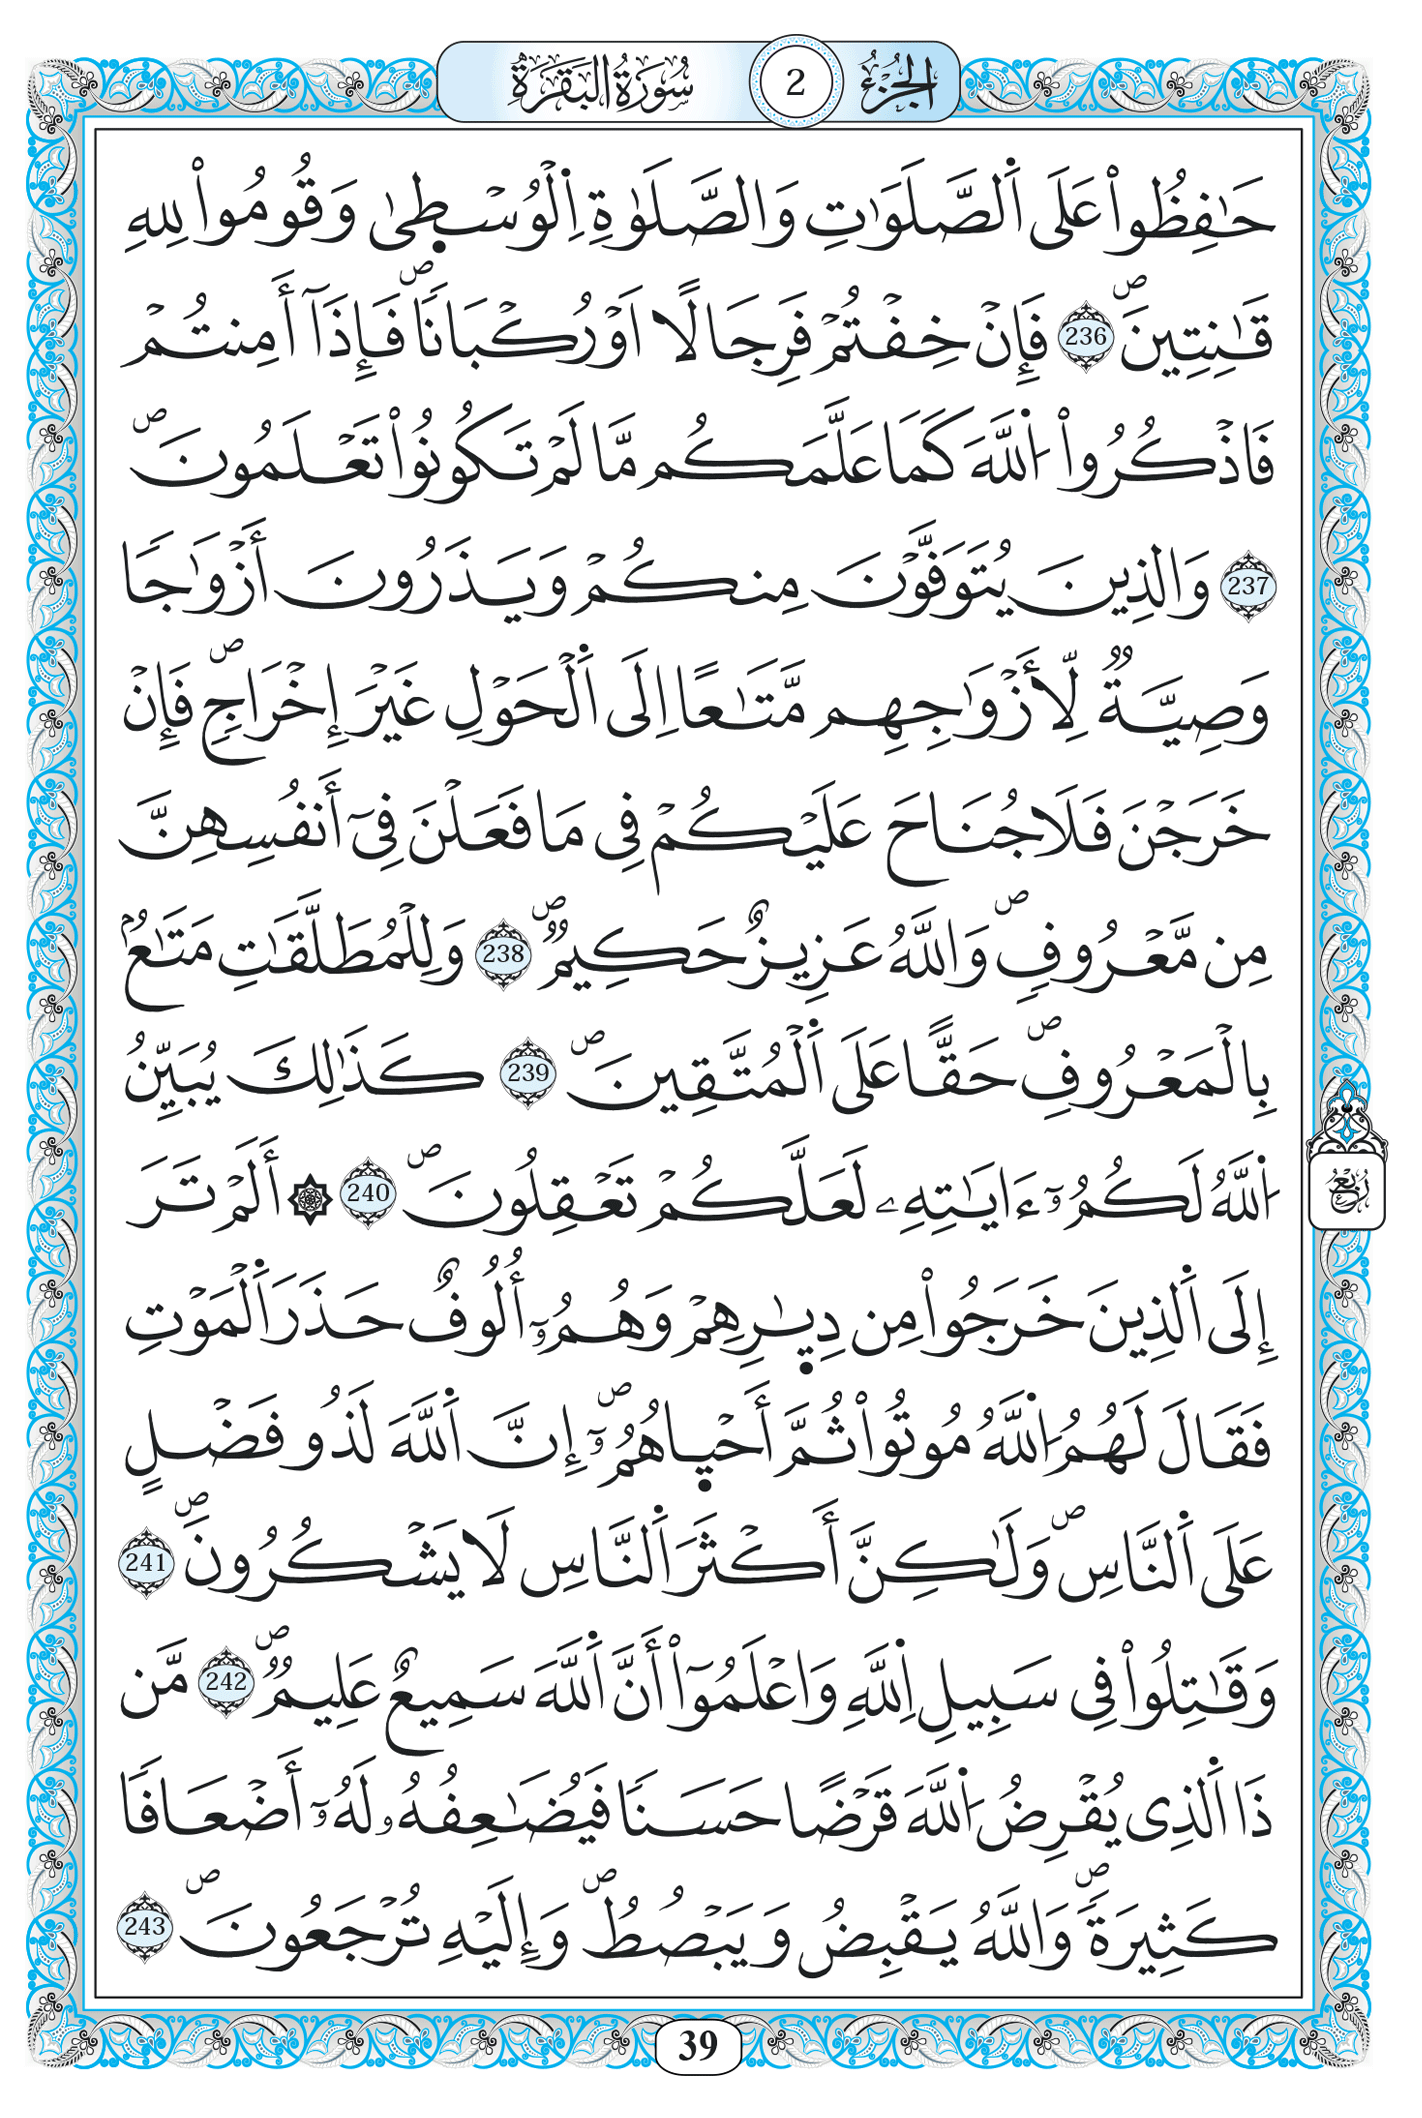 الجزء 2 سورة البقرة
حَٰفِظُوا۟ عَلَى اَ۬لصَّلَوَٰتِ وَالصَّلَوٰةِ اِ۬لْوُسْط۪يٰ وَقُومُوا۟ لِلهِ
قَٰنِتِينَۖ 236 فَإِنْ خِفْتُمْ فَرِجَالًا اَوْ رُكْبَانٗاۖ فَإِذَآ أَمِنتُمْ
فَاذْكُرُوا۟ اُ۬للَّهَ كَمَا عَلَّمَكُم مَّا لَمْ تَكُونُوا۟ تَعْلَمُونَۖ
237 وَالذِينَ يُتَوَفَّوْنَ مِنكُمْ وَيَذَرُونَ أَزْوَٰجٗا
وَصِيَّةٞ لِّأَزْوَٰجِهِم مَّتَٰعًا اِلَى اَ۬لْحَوْلِ غَيْرَ إِخْرَاجٖۖ فَإِنْ
خَرَجْنَ فَلَا جُنَاحَ عَلَيْكُمْ فِي مَا فَعَلْنَ فِيٓ أَنفُسِهِنَّ
مِن مَّعْرُوفٖۖ وَاللَّهُ عَزِيزٌ حَكِيمٞۖ 238 وَلِلْمُطَلَّقَٰتِ مَتَٰعُۢ
بِالْمَعْرُوفِۖ حَقًّا عَلَى اَ۬لْمُتَّقِينَۖ 239 كَذَٰلِكَ يُبَيِّنُ
اُ۬للَّهُ لَكُمُۥٓ ءَايَٰتِهِۦ لَعَلَّكُمْ تَعْقِلُونَۖ 240 ۞ أَلَمْ تَرَ
إِلَى اَ۬لذِينَ خَرَجُوا۟ مِن دِيٰ۪رِهِمْ وَهُمُۥٓ أُلُوفٌ حَذَرَ اَ۬لْمَوْتِ
فَقَالَ لَهُمُ اُ۬للَّهُ مُوتُوا۟ ثُمَّ أَحْي۪اهُمُۥٓۖ إِنَّ اَ۬للَّهَ لَذُو فَضْلٍ
عَلَى اَ۬لنَّاسِۖ وَلَٰكِنَّ أَكْثَرَ اَ۬لنَّاسِ لَا يَشْكُرُونَۖ 241
وَقَٰتِلُوا۟ فِي سَبِيلِ اِ۬للَّهِ وَاعْلَمُوٓا۟ أَنَّ اَ۬للَّهَ سَمِيعٌ عَلِيمٞۖ 242 مَّن
ذَا اَ۬لذِي يُقْرِضُ اُ۬للَّهَ قَرْضًا حَسَنٗا فَيُضَٰعِفُهُۥ لَهُۥٓ أَضْعَافٗا
كَثِيرَةٗۖ وَاللَّهُ يَقْبِضُ وَيَبْصُطُۖ وَإِلَيْهِ تُرْجَعُونَۖ 243
ربع
39